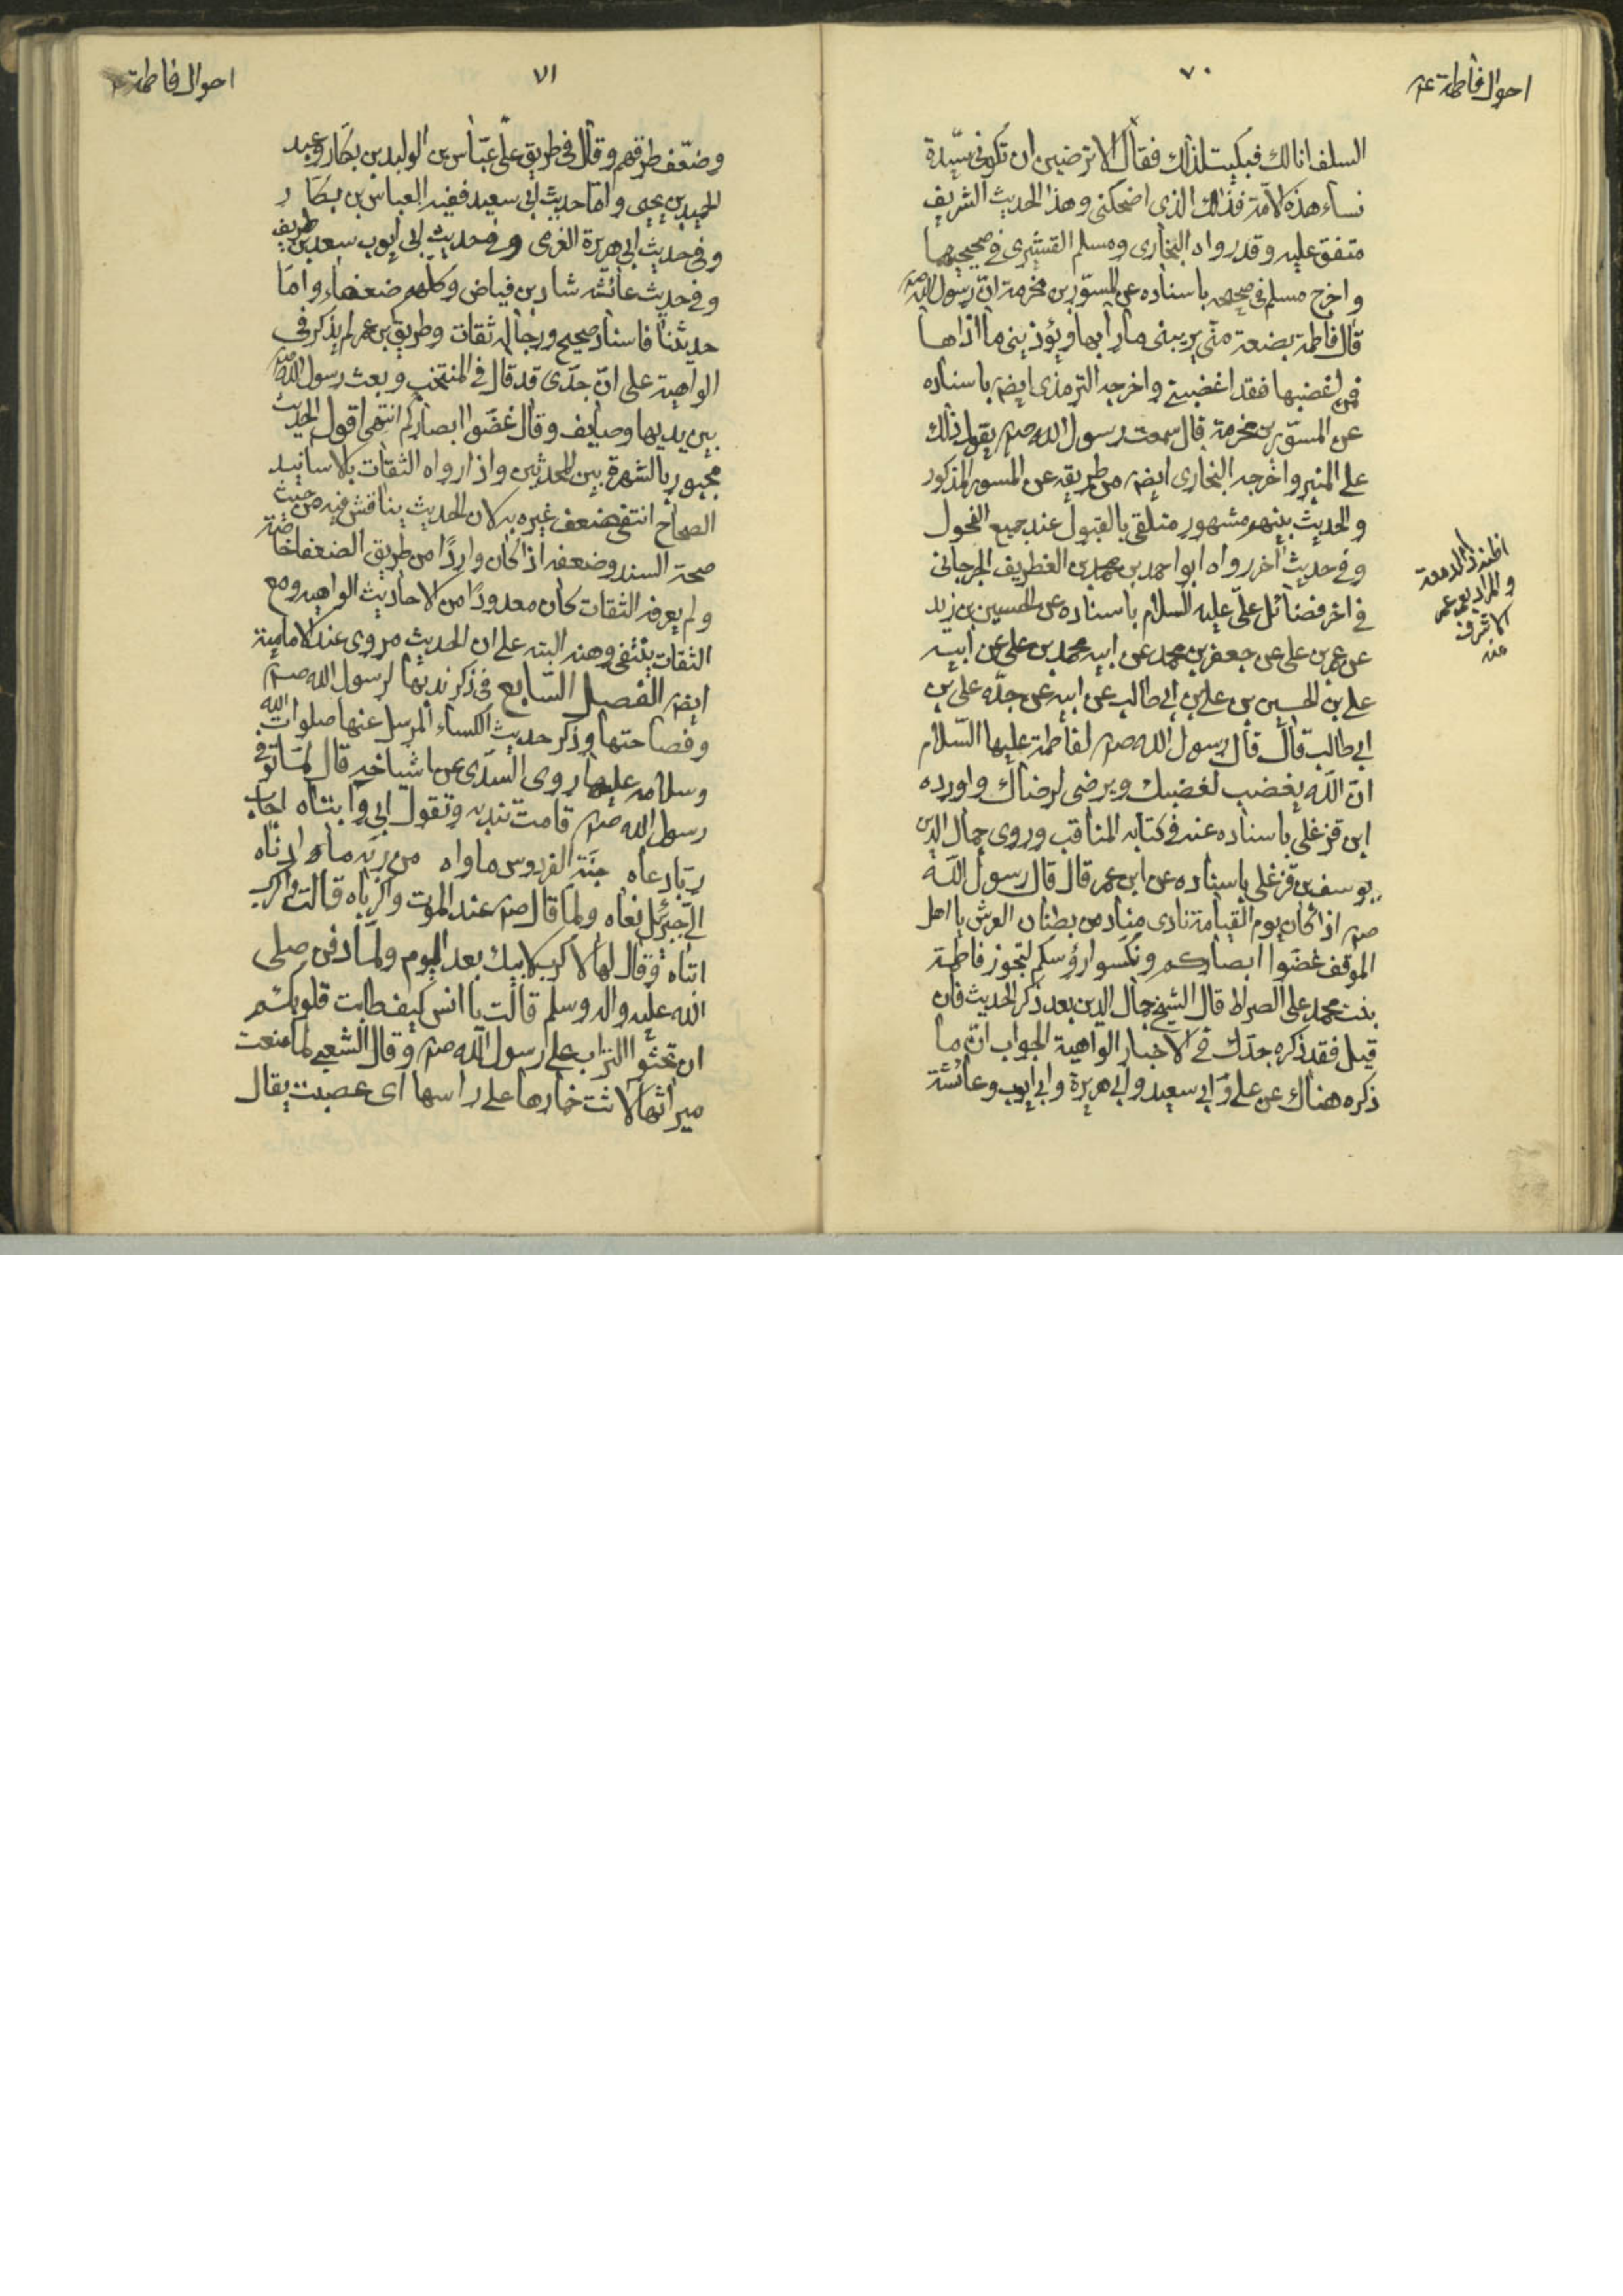 احوال فاطمة ع
٧٠
السلف انا لك فبكيت لذلك فقال الا ترضين ان تكونى سيّدة
نساء هذه الامّة فذلك الذى اضحكنى وهذا الحديث الشريف
متفق عليه وقد رواه البخارى ومسلم القشيرى فى صحيحيهما
واخرج مسلم فى صحيحه باسناده عن المسوّر بن مخرمة انّ رسول اللّه صم
قال فاطمة بضعة منّى يريبنى ما رابها ويؤذينى ما اذاها
فمن اغضبها فقد اغضبنى واخرجه الترمذى ايضم باسناده
عن المسوّر بن مخرمة قال سمعت رسول الله صم يقول ذلك
على المنبر واخرجه البخارى ايضم من طريقه عن المسور المذكور
والحديث بينهم مشهور متلقى بالقبول عند جميع الفحول
وفى حديث اخر رواه ابو احمد بن محمد بن الغطريف الجرجانى
فى اخر فضائل علىّ عليه السلام باسناده عن الحسين بن زيد
عن عمر بن على عن جعفر بن محمد عن ابيه محمد بن على عن ابيه
على بن الحسين بن على بن ابى طالب عن ابيه عن جدّه على بن
ابى طالب قال قال رسول الله صم لفاطمة عليها السّلام
انّ اللّه يغضب لغضبك ويرضى لرضاك واورده
ابن قزغلى باسناده عنه فى كتابه المناقب وروى جمال الدين
يوسف بن قزغلى باسناده عن ابن عمر قال قال رسول اللّه
صم اذا كان يوم القيامة نادى مناد من بطنان العرش يا اهل
الموقف غضّوا ابصاركم ونكسوا رؤسكم لتجوز فاطمة
بنت محمد على الصراط قال الشيخ جمال الدين بعد ذكر الحديث فان
قيل فقد ذكره جدّك فى الاخبار الواهية الجواب انّ ما
ذكره هناك عن على وابى سعيد وابى هريرة وابى ايوب وعائشة
والمراد بعمر عمر
الاشرف
منه
احوال فاطمة
٧١
وضعّف طرقهم وقال فى طريق علىّ عبّاس بن الوليد بن بكّار وعبد
الحميد بن يحيى وامّا حديث ابى سعيد ففيه العباس بن بكّار
وفى حديث ابى هريرة العرمى وفى حديث ابى ايوب سعد بن طريف
وفى حديث عائشه شاد بن فياض وكلّهم ضعفاء وامّا
حديثنا فاسناد صحيح ورجاله ثقات وطريق ابن عمر لم يذكر فى
الواهية على انّ جدّى قد قال فى المنتخب وبعث رسول اللّه صم
بين يديها وصايف وقال غضّوا ابصاركم انتهى اقول الحديث
مجبور بالشهرة بين المحدثين واذا رواه الثقات بالاسانيد
الصحاح انتفى ضعف غيره به لان الحديث يناقش فيه من حيث
صحة السند وضعفه اذا كان واردًا من طريق الضعفا خاصة
ولم يعرفه الثقات كان معدودًا من الاحاديث الواهيه ومع
الثقات ينتفى وهنه البته على ان الحديث مروى عند الامامية
ايضم الفصل السّابع فى ذكر ندبها لرسول الله صم
وفصاحتها وذكر حديث الكساء المرسل عنها صلوات اللّه
وسلامه عليها روى السدّى عن اشياخه قال لمّا توفى
رسول الله صم قامت تندبه وتقول ابى وا ابتاه اجاب
ربّا دعاه جنّة الفردوس ماواه من ربّه ما ادناه
الى جبرئيل نعاه ولما قال صم عند الموت واكرباه قالت واكرب
ابتاه وقال لها لا كرب لابيك بعد اليوم ولمّا دفن صلى
الله عليه واله وسلم قالت يا انس كيف طابت قلوبكم
ان تحثوا التراب على رسول الله صم وقال الشعبى لما منعت
ميراثها لاثت خمارها على راسها اى عصبت يقال